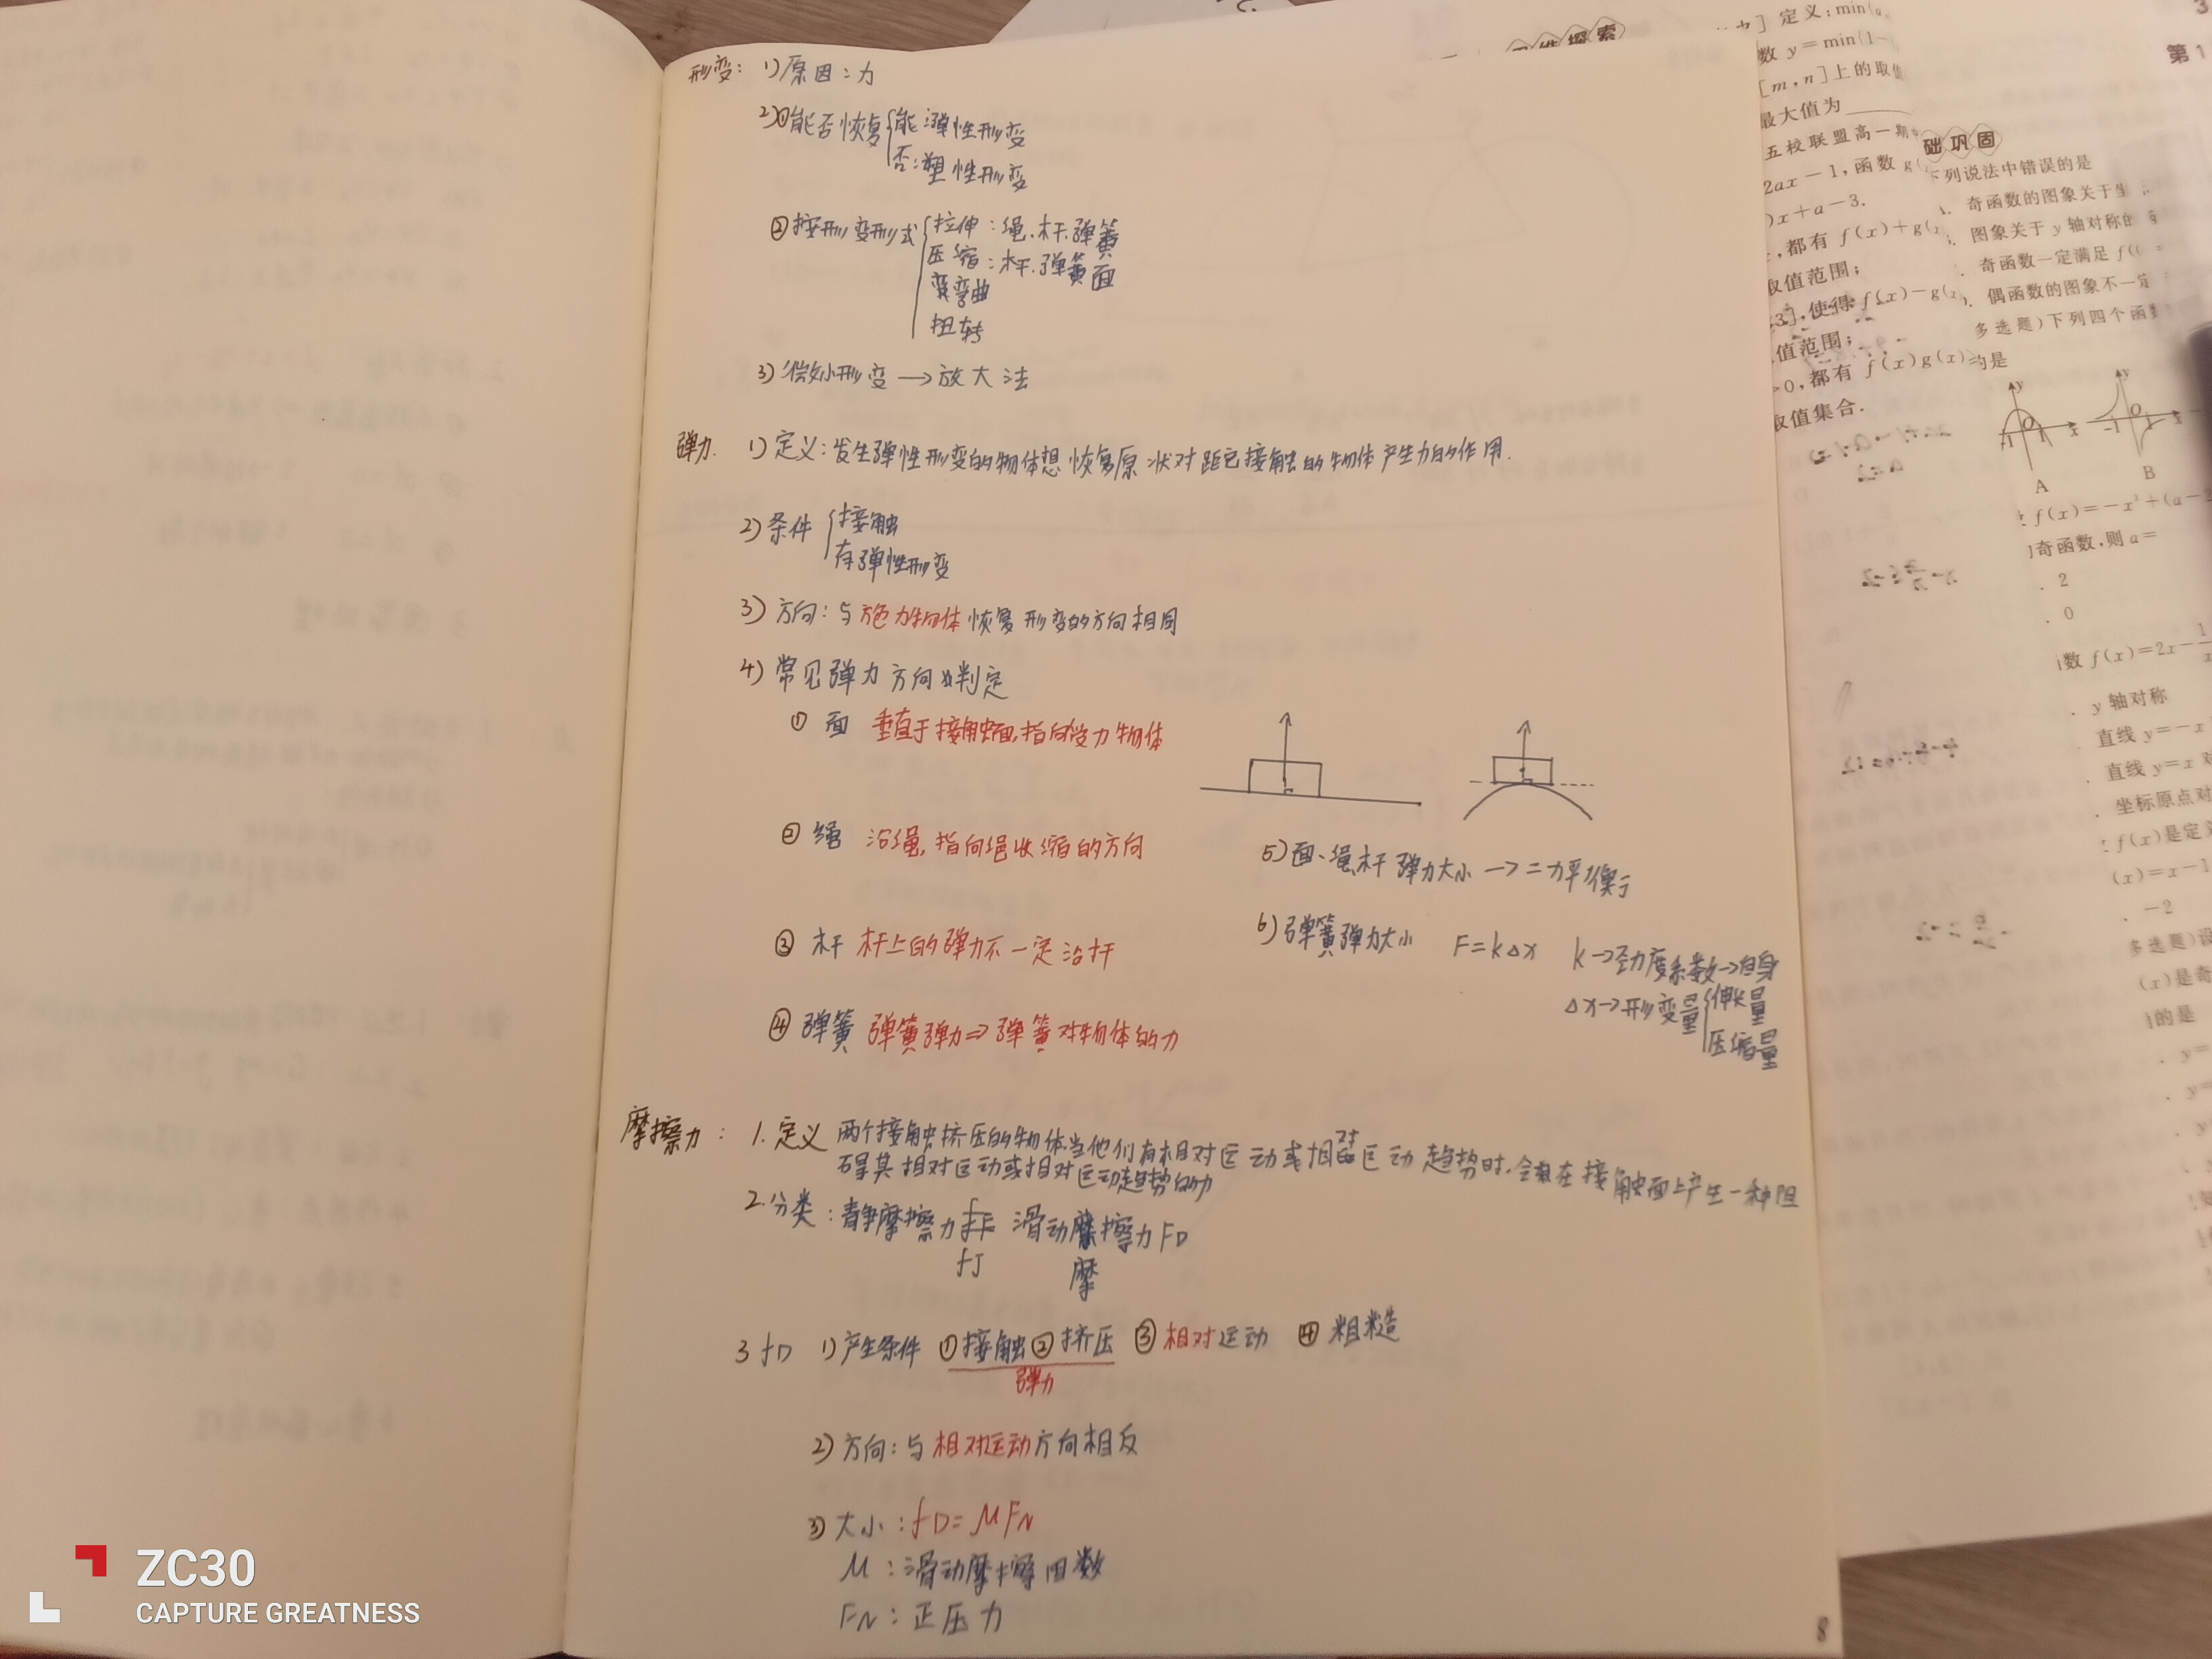 形变：1)原因：力
2)①能否恢复{能:弹性形变
否:塑性形变
②按形变形式{拉伸：绳.杆.弹簧
压缩：杆.弹簧面
弯曲
扭转
3)微小形变→放大法
弹力. 1)定义：发生弹性形变的物体想恢复原状对跟它接触的物体产生力的作用.
2)条件{接触
有弹性形变
3)方向：与施力物体恢复形变的方向相同
4)常见弹力方向的判定
①面 垂直于接触面,指向受力物体
②绳 沿绳,指向绳收缩的方向
③杆 杆上的弹力不一定沿杆
④弹簧 弹簧弹力⇒弹簧对物体的力
5)面、绳、杆弹力大小→二力平衡
6)弹簧弹力大小 F=kΔx k→劲度系数→自身
Δx→形变量{伸长量
压缩量
摩擦力：1.定义 两个接触挤压的物体当他们有相对运动或相对运动趋势时.会在接触面上产生一种阻
碍其相对运动或相对运动趋势的力
2.分类：静摩擦力 滑动摩擦力FD
fJ 摩
3 fD 1)产生条件 ①接触②挤压 ③相对运动 ④粗糙
弹力
2)方向：与相对运动方向相反
3)大小：fD=μFN
μ：滑动摩擦因数
FN：正压力
8
ZC30
CAPTURE GREATNESS
定义：min{a,
数 y=min{1-
[m,n]上的取值
最大值为
五校联盟高一期中
2ax-1,函数 g(
)x+a-3.
,都有 f(x)+g(x
取值范围；
3],使得 f(x)-g(x
值范围；
>0,都有 f(x)g(x)
取值集合.
第1
础巩固
下列说法中错误的是
奇函数的图象关于坐
图象关于 y 轴对称的
奇函数一定满足 f(
偶函数的图象不一定
多选题)下列四个函数
的是
y
O
x
-1
1
A
B
f(x)=-x³+(a-2
奇函数,则 a=
2
0
数 f(x)=2x-1/x
y 轴对称
直线 y=-x
直线 y=x 对
坐标原点对
f(x)是定义
(x)=x-1
-2
多选题)设
(x)是奇
的是